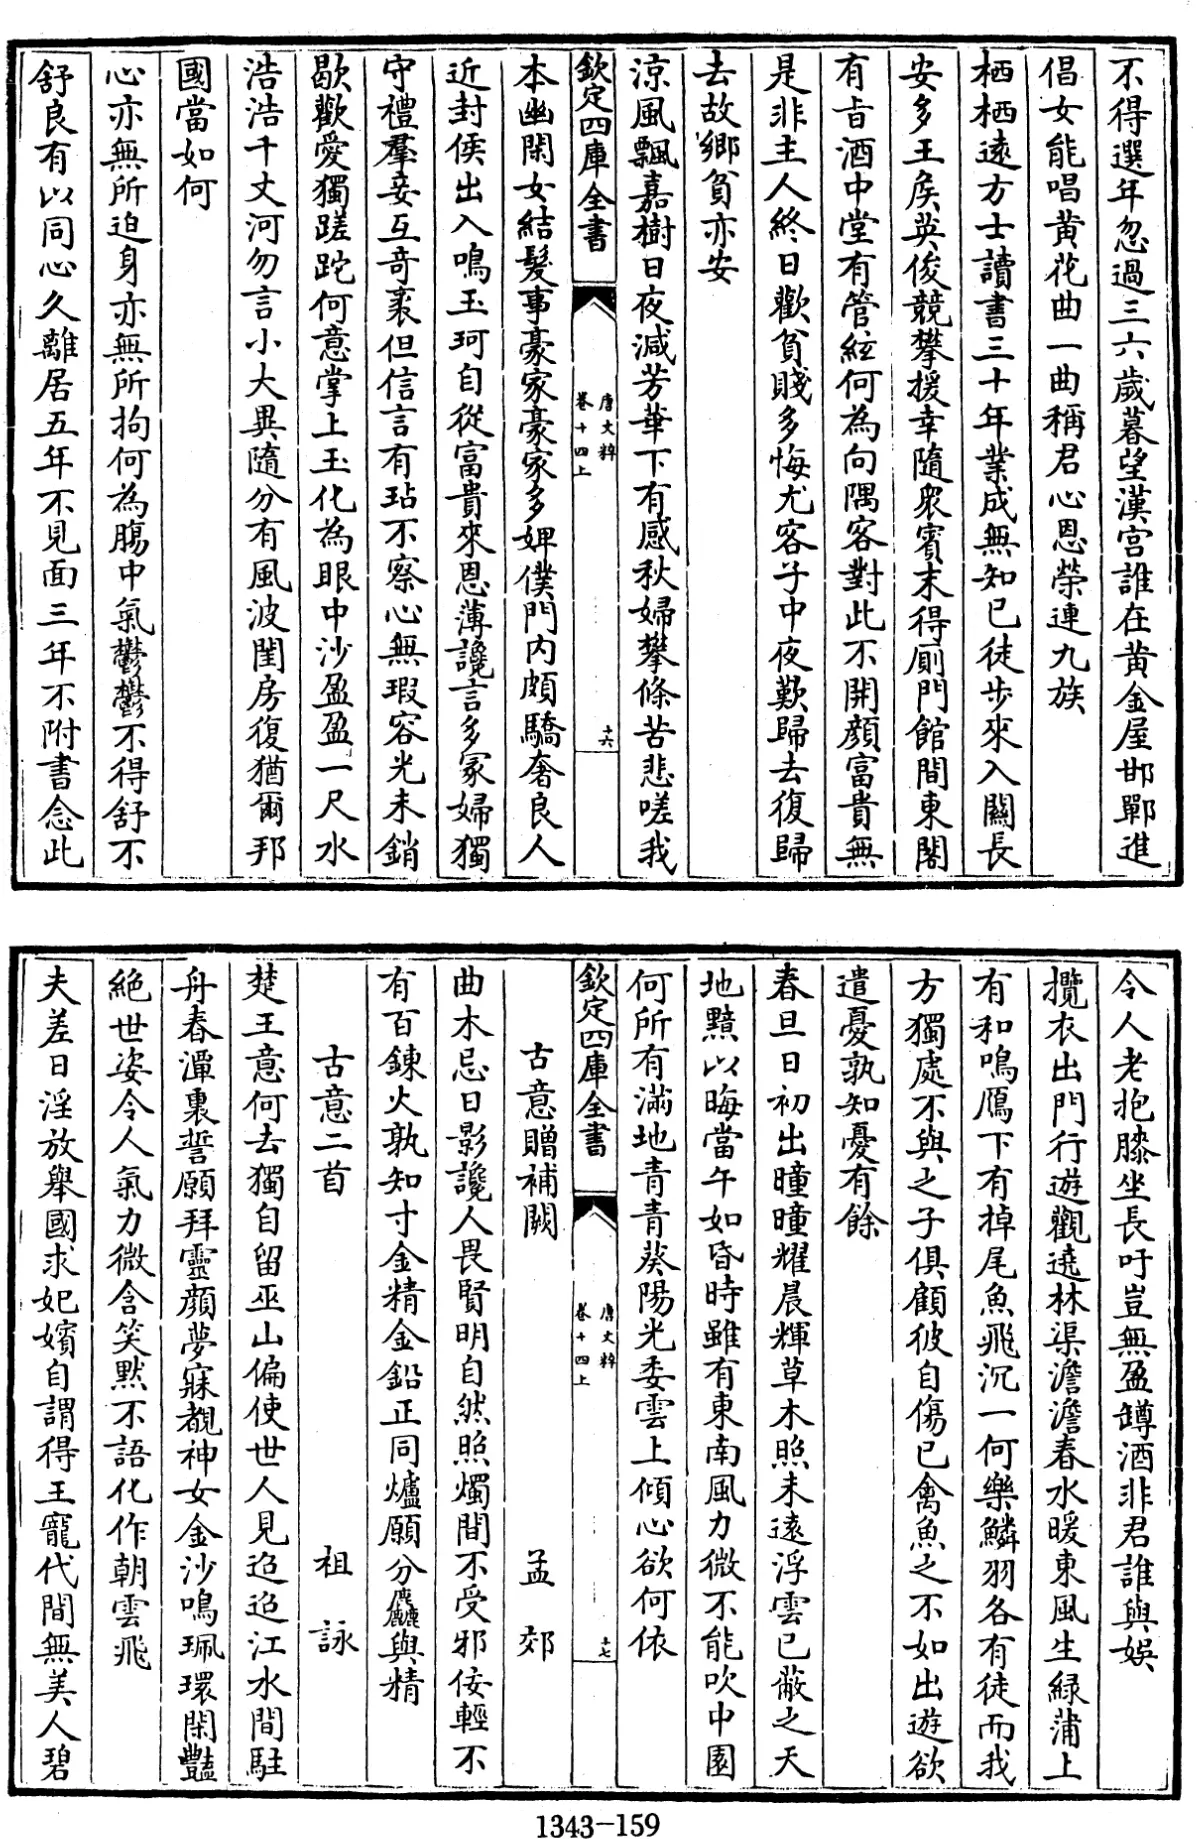 不得選年忽過三六歲暮望漢宮誰在黄金屋邯鄲進
倡女能唱黄花曲一曲稱君心恩榮連九族
栖栖逺方士讀書三十年業成無知已徒步來入闗長
安多王侯英俊競攀援幸隨衆賔末得厠門館間東閣
有㫖酒中堂有管絃何為向隅客對此不開顔富貴無
是非主人終日歡貧賤多悔尤客子中夜歎歸去復歸
去故鄉貧亦安
涼風飄嘉樹日夜減芳華下有感秋婦攀條苦悲嗟我
欽定四庫全書
唐文粹
卷十四上
十六
本幽閑女結髮事豪家豪家多婢僕門内頗驕奢良人
近封侯出入鳴玉珂自從富貴來恩薄讒言多冢婦獨
守禮羣妾互竒袤但信言有玷不察心無瑕容光未銷
歇歡愛獨蹉跎何意掌上玉化為眼中沙盈盈一尺水
浩浩千丈河勿言小大異隨分有風波閨房復猶爾邦
國當如何
心亦無所迫身亦無所拘何為膓中氣鬱鬱不得舒不
舒良有以同心久離居五年不見面三年不附書念此
令人老抱膝坐長吁豈無盈罇酒非君誰與娱
攬衣出門行遊觀遶林渠澹澹春水暖東風生緑蒲上
有和鳴鴈下有掉尾魚飛沉一何樂鱗羽各有徒而我
方獨處不與之子俱顧彼自傷已禽魚之不如出遊欲
遣憂孰知憂有餘
春旦日初出曈曈耀晨輝草木照未逺浮雲已蔽之天
地黯以晦當午如昏時雖有東南風力微不能吹中園
何所有滿地青青葵陽光委雲上傾心欲何依
欽定四庫全書
唐文粹
卷十四上
十七
古意贈補闕 孟郊
曲木忌日影讒人畏賢明自然照燭間不受邪佞輕不
有百鍊火孰知寸金精金鉛正同爐願分麤與精
古意二首 祖詠
楚王意何去獨自留巫山偏使世人見迢迢江水間駐
舟春潭裏誓願拜靈顔夢寐覩神女金沙鳴珮環閑豔
絶世姿令人氣力微含笑黙不語化作朝雲飛
夫差日淫放舉國求妃嬪自謂得王寵代間無美人碧
1343-159